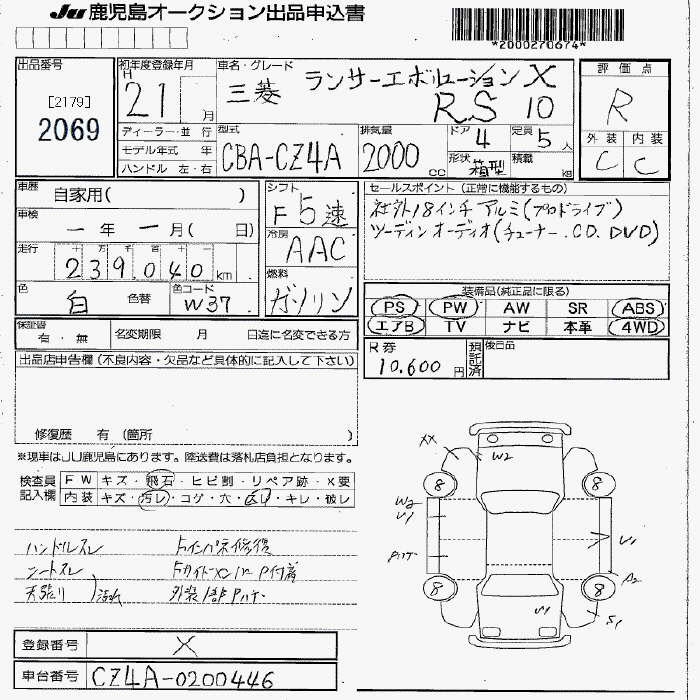 JU 鹿児島オークション出品申込書
*2000270674*
出品番号
[2179]
2069
初年度登録年月
H 21 月
車名・グレード
三菱 ランサーエボリューションX
RS 10
評価点
R
外装 内装
C C
ディーラー・並行
モデル年式 年
ハンドル 左・右
型式
CBA-CZ4A
排気量
2000 cc
ドア
4
定員
5 人
形状
箱型
積載
kg
車歴
自家用( )
車検
一 年 一 月( 日)
走行
十 万 千 百 十
239,040 km
色
白 色替
色コード
W37
シフト
F5速
冷房
AAC
燃料
ガソリン
セールスポイント(正常に機能するもの)
社外18インチアルミ(プロドライブ)
ツーディンオーディオ(チューナー.CD.DVD)
装備品(純正品に限る)
PS PW AW SR ABS
エアB TV ナビ 本革 4WD
保証書
有・無
名変期限 月 日迄に名変できる方
R券
10,600円
預託済
後日品
出品店申告欄(不良内容・欠品など具体的に記入して下さい)
修復歴 有(箇所 )
※現車はJU鹿児島にあります。陸送費は落札店負担となります。
検査員記入欄
FW キズ・飛石・ヒビ割・リペア跡・X要
内装 キズ・汚レ・コゲ・穴・スレ・キレ・破レ
ハンドルスレ
シートスレ
天張り
汚れ
XX
W2
8
8
W2
U1
U1
A2
8
8
U1
S1
登録番号
X
車台番号
CZ4A-0200446